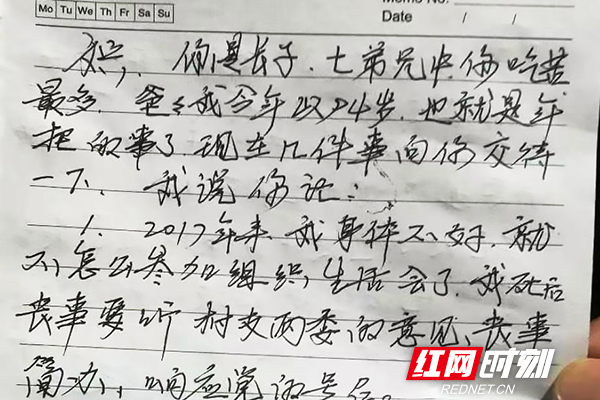 Mo Tu We Th Fr Sa Su
Memo No.
Date / /
你是长子.七弟兄中你吃苦
最多.爸爸我今年以84岁.也就是年
把的事了.现在几件事向你交待
一下.我说你记:
1.2017年来我身体不好.就
不怎么参加组织生活会了.我死后
丧事要听村支两委的意见、丧事
简办,响应党的号召。
红网时刻
REDNET.CN